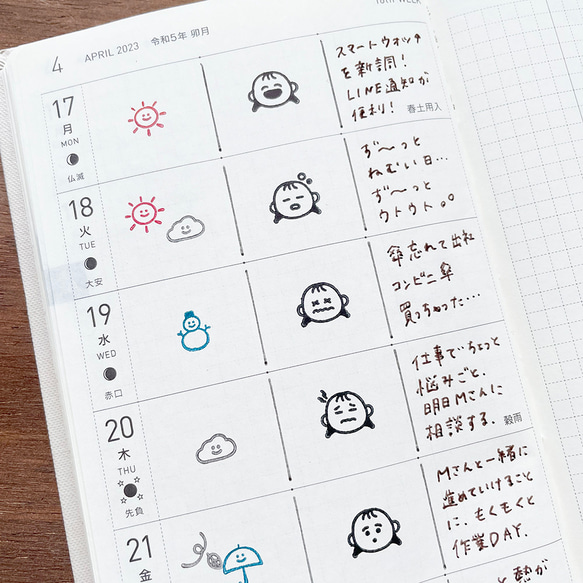 4 APRIL 2023 令和5年 卯月
17
月
MON
仏滅
スマートウォッチ
を新調!
LINE通知が
便利!
春土用入
18
火
TUE
大安
ず〜っと
ねむい日…
ず〜っと
ウトウト。。
19
水
WED
赤口
傘忘れて出社
コンビニ傘
買っちゃった…
20
木
THU
先負
仕事でちょっと
悩みごと、
明日Mさんに
相談する。
穀雨
21
金
Mさんと一緒に
進めていけること
に、もくもくと
作業DAY。